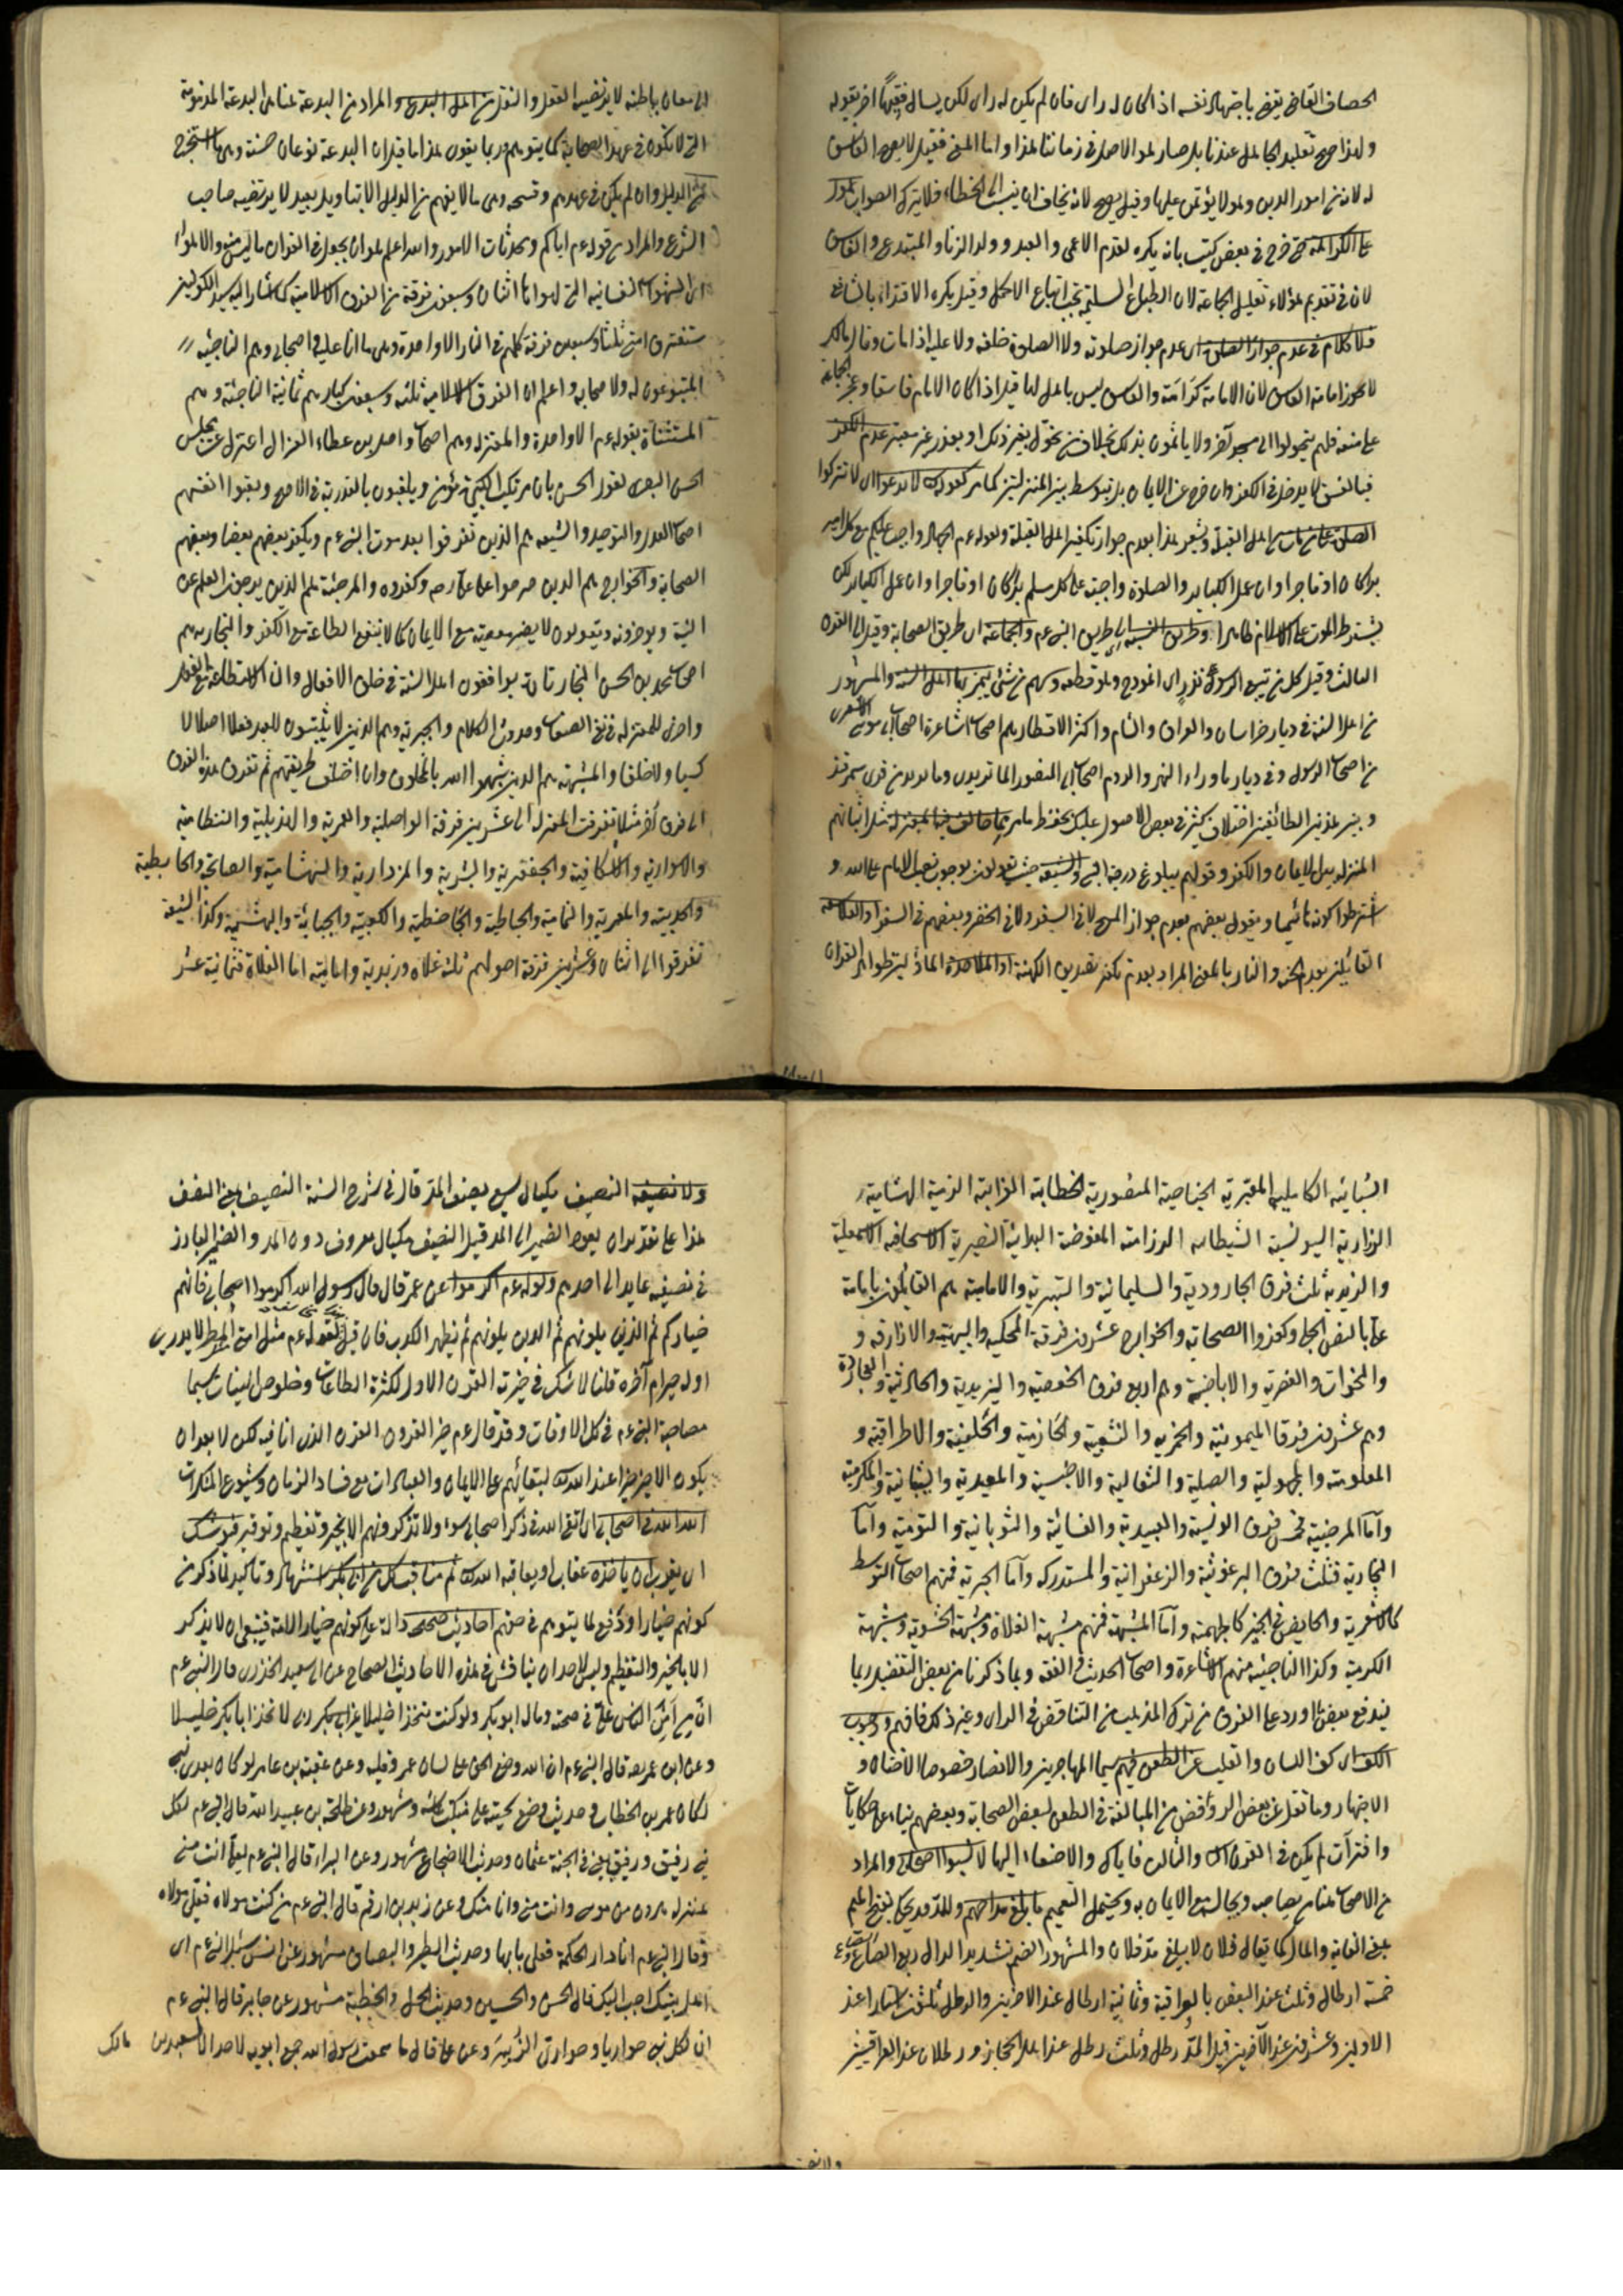 الخصاف القاضى يقضى باجتهاد نفسه اذا كان له راى فان لم يكن له راى لكن يسال فقيها اخر بقوله
ولهذا صح تقليد الجاهل عندنا بل صار هو الاصل فى زماننا هذا واما المفتى فقيل لا يصح الفاسق
له لانه من امور الدين وهو لا يؤتمن عليها وقيل يصح لانه يخاف ان ينسب الى الخطاء فلا يترك الصواب
على الكراهة حتى صرح فى بعض كتب بانه يكره تقدم الاعمى والعبد وولد الزنا والمبتدع والفاسق
لان فى تقديم هؤلاء تقليل الجماعة لان الطباع السليمة تجب اتباع الاكمل وقيل يكره الاقتداء بالشافعى
فلا كلام فى عدم جواز الصلوة اى عدم جواز صلوته ولا الصلوة خلفه ولا عليه اذا مات وقال مالك
لا يجوز امامة الفاسق لان الامامة كرامة والفاسق ليس باهل لها قيل اذا كان الامام فاسقا وعجز الجماعة
على منعه فلهم يتحولوا الى مسجد آخر ولا ياثمون بذلك بخلاف من تحول بغير ذلك او بعذر غير معتبر عدم الكفر
فبالفسق لا يدخل فى الكفر وان خرج عن الايمان بل يتوسط بين المنزلتين كما مر
الصلوة على من مات من اهل القبلة ويشعر هذا بعدم جواز تكفير اهل القبلة وقوله عم الجهاد واجب عليكم مع كل امير
برا كان او فاجرا وان عمل الكبائر والصلوة واجبة على كل مسلم برا كان او فاجرا وان عمل الكبائر لكن
يشترط الموت على الاسلام ظاهرا وطريق السنة اى طريق النبى عم والجماعة اى طريق الصحابة وقيل الى القرن
الثالث وقيل كل من تبع الرسول
من اهل السنة فى ديار خراسان والعراق والشام واكثر الاقطار هم اصحاب اشاعرة اصحاب ابى موسى الاشعرى
من اصحاب الرسول وفى ديار ما وراء النهر والروم اصحاب ابى المنصور الماتريدى وما تريد من قرى سمرقند
وبين هذين الطائفتين اختلاف كثير فى بعض الاصول عليك بحفظ ما مر مما خالف فيه المعتزلة مثل اثباتهم
المنزلة بين الايمان والكفر وقولهم ببلوغ درجة النبى والشيعة حيث يقولون بوجوب نصب الامام على الله و
اشترطوا كونه هاشميا ويقول بعضهم بعدم جواز المسح لا فى السفر ولا فى الحضر وبعضهم فى السفر والفلاسفة
القائلين بعدم الجنة والنار بالمعنى المراد بعدم تكفر تصديق الكهنة او الملاحدة
الى معان باطنة لا يرتضيها العقل والنقل من اهل البدع والمراد من البدعة هنا هى البدعة المذمومة
التى لا تكون فى عهد الصحابة كما يتوهم وربما يقول هذا ما قيل ان البدعة نوعان حسنة وهى ما استخرج
من الدليل وان لم يكن فى عهدهم وقبيحة وهى ما لا يفهم من الدليل الا بتاويل بعيد لا يرتضيه صاحب
الشرع والمراد من قوله عم اياكم ومحدثات الامور والله اعلم هو ان يجعل فى القران ما ليس منه والاهواء
اى الشهوات النفسانية التى لهواها اثنان وسبعون فرقة من الفرق الاسلامية كما اشار اليه سيد الكونين
ستفترق امتى ثلثا وسبعين فرقة كلهم فى النار الا واحدة وهى ما انا عليه واصحابى وهم الناجية
المتبوعون له ولاصحابه واعلم ان الفرق الاسلامية ثلثة وسبعون كبارهم ثمانية الناجية وهم
المستثناة بقوله عم الا واحدة والمعتزلة وهم اصحاب واصل بن عطاء الغزال اعتزل عن مجلس
الحسن البصرى لقول الحسن بان مرتكب الكبيرة مؤمن ويلقبون بالقدرية فى الاصح ولقبوا انفسهم
اصحاب العدل والتوحيد والشيعة هم الذين تفرقوا بعد موت النبى عم ويكفر بعضهم بعضا وبعضهم
الصحابة والخوارج هم الذين خرجوا على على رضه وكفروه والمرجئة هم الذين يرجون العلم عن
النية ويؤخرونه ويقولون لا يضر معصية مع الايمان كما لا ينفع الطاعة مع الكفر والنجارية هم
اصحاب محمد بن الحسن النجار تارة يوافقون اهل السنة فى خلق الافعال وان الاستطاعة مع الفعل
واخرى للمعتزلة فى نفى الصفات وحدوث الكلام والجبرية وهم الذين لا يثبتون للعبد فعلا اصلا لا
كسبا ولا خلقا والمشبهة هم الذين شبهوا الله بالمخلوق وان اختلف طريقتهم ثم تفرق هذه الفرق
الى فرق اخر مثلا تفرقت المعتزلة الى عشرين فرقة الواصلية والعمرية والهذيلية والنظامية
والاسوارية والاسكافية والجعفرية والبشرية والمزدارية والهشامية والصالحية والحابطية
والحدبية والمعمرية والثمامية والخياطية والجاحظية والكعبية والجبائية والبهشمية وكذا الشيعة
تفرقوا الى اثنان وعشرين فرقة اصولهم ثلثة غلاة وزيدية وامامية اما الغلاة فثمانية عشر
السبائية الكاملية المغيرية الجناحية المنصورية الخطابية الغرابية الذمية الهشامية
الزرارية اليونسية الشيطانية الرزامية المفوضة البدائية النصيرية الاسحاقية الاسمعيلية
والزيدية ثلث فرق الجارودية والسليمانية والبتيرية والامامية هم القائلون بامامة
على بالنص الجلى وكفروا الصحابة والخوارج عشرون فرقة المحكمية والبيهسية والازارقة و
والنجدات والصفرية والاباضية وهم اربع فرق الحفصية واليزيدية والحارثية والعجاردة
وهم عشرون فرقا الميمونية والحمزية والشعيبية والحازمية والخلفية والاطرافية و
المعلومية والمجهولية والصلتية والثعالبة والاخنسية والمعبدية والشيبانية والمكرمية
واما المرجئية خمس فرق اليونسية والعبيدية والغسانية والثوبانية والتومنية واما
النجارية فثلث فرق البرغوثية والزعفرانية والمستدركة واما الجبرية فمنهم اصحاب التوسط
كالاشعرية والخالص فى الجبر كالجهمية واما المشبهة فمنهم مشبهة الغلاة ومشبهة الحشوية ومشبهة
الكرامية وكذا الناجية منهم الاشاعرة واصحاب الحديث والفقه وبما ذكرنا من بعض التفصيل ربما
يندفع بعض ما اورد على الفرق من ترك المذهب من التناقض فى الراى وغير ذلك فافهم ووجوب
الكف اى كف اللسان والقلب عن الطعن فيهم سيما المهاجرين والانصار خصوصا الاختان و
الاصهار وما نقل عن بعض الروافض من المبالغة فى الطعن لبعض الصحابة وبعضهم بناء على حكايات
وافترآت لم يكن فى القرن الثانى والثالث فاياك والاصغاء اليها لا تسبوا اصحابى والمراد
من الاصحاب هنا من يصاحبه ويجالسه مع الايمان به ويحتمل التعميم ما بلغ مد احدهم والمد قد يحكى بفتح الميم
بمعنى الغاية والمال كما يقال فلان لا يبلغ مد فلان والمشهور الضم بتشديد الدال ربع الصاع وهو
خمسة ارطال وثلث عند البعض بالعراقية وثمانية ارطال عند الاخرين والرطل ثلثون استارا عند
الاولين وعشرون عند الآخرين قيل المد رطل وثلث رطل عند اهل الحجاز ورطلان عند العراقيين
ولا نصيفه النصيف مكيال يسع نصف المد قال فى شرح السنة النصيف بمعنى النصف
هذا على تقدير ان يعود الضمير الى المد قيل النصيف مكيال معروف دون المد والضمير البارز
فى نصيفه عايد الى احدهم وقوله عم اكرموا عن عمر قال قال رسول الله اكرموا اصحابى فانهم
خياركم ثم الذين يلونهم ثم الذين يلونهم ثم يظهر الكذب فان قيل لقوله عم مثل امتى المطر لا يدرى
اوله خير ام آخره قلنا لا شك فى خيرية القرن الاول لكثرة الطاعات وخلوص النيات سيما
مصاحبة النبى عم فى كل الاوقات وقد قال عم خير القرون القرن الذى انا فيه لكن لا بعد ان
يكون الاخير خيرا عند الله لبقائهم على الايمان والعبادات مع فساد الزمان وشيوع المنكرات
الله الله فى اصحابى اى اتقى الله فى ذكر اصحابى سوء ولا تذكرونهم الا بخير وتعظيم وتوقير فيوشك
اى يقرب ان ياخذه عقاب او يعاقبه الله ثم مناقب كل من ابى بكر اشتهار وتاكيد لما ذكر من
كونهم خيارا ودفع لما يتوهم فى حقهم احاديث صحيحة دالة على كونهم خيار الامة فينبغى ان لا يذكر
الا بالخير والتعظيم وليس لاحد ان يناقش فى هذه الاحاديث الصحاح عن ابى سعيد الخدرى قال النبى عم
ان من امن الناس على فى صحبته وماله ابو بكر ولو كنت متخذا خليلا غير ربى لاتخذ ابا بكر خليلا
وعن ابن عمر رضه قال النبى عم ان الله وضع الحق على لسان عمر وقلبه وعن عقبة بن عامر لو كان بعدى نبى
لكان عمر بن الخطاب وحديث وضع مشهور وعن طلحة بن عبيد الله قال النبى عم لكل
نبى رفيق ورفيقى يعنى فى الجنة عثمان وحديث الاضجاع مشهور وعن البراء قال النبى عم لعلى انت منى
بمنزلة هرون من موسى وانت منى وانا منك وعن زيد بن ارقم قال النبى عم من كنت مولاه فعلى مولاه
وقال النبى عم انا دار الحكمة وعلى بابها وحديث الطير والبصاق مشهور عن انس سئل النبى عم اى
اهل بيتك احب اليك قال الحسن والحسين وحديث الحمل والخطبة مشهور عن جابر قال النبى عم
ان لكل نبى حواريا وحوارى الزبير وعن على قال ما سمعت رسول الله جمع ابويه لاحد الا لسعد بن مالك